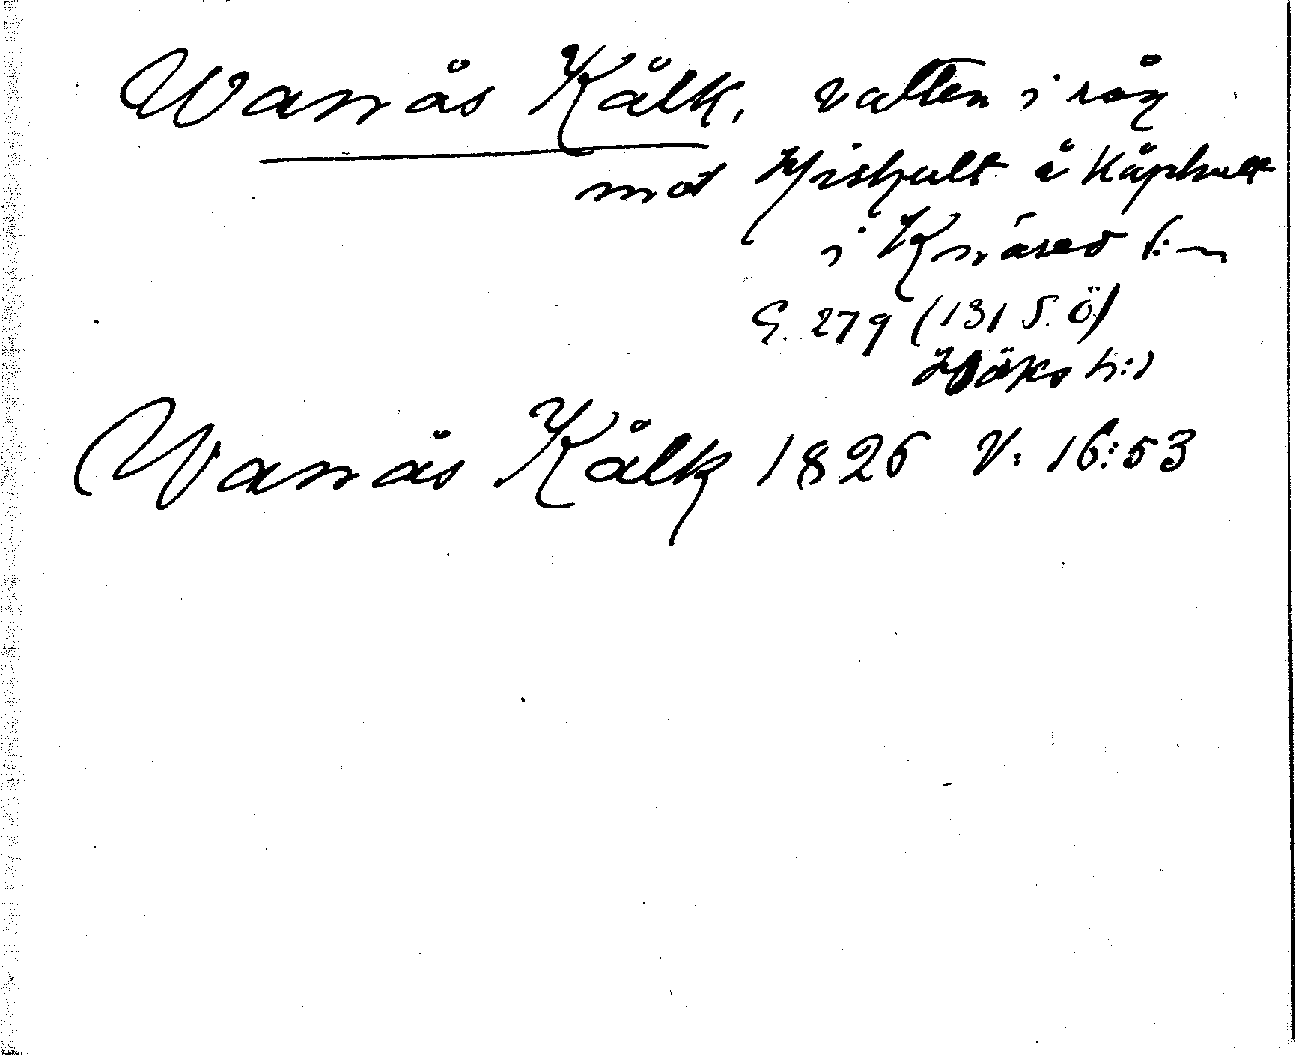 Wanås Kålk, vatten i råg
mot Hishult å Kåphult
i Knäred s:n
G. 279 (131 S. Ö)
Höks h:d
Wanås Kålk 1826 V. 16:53